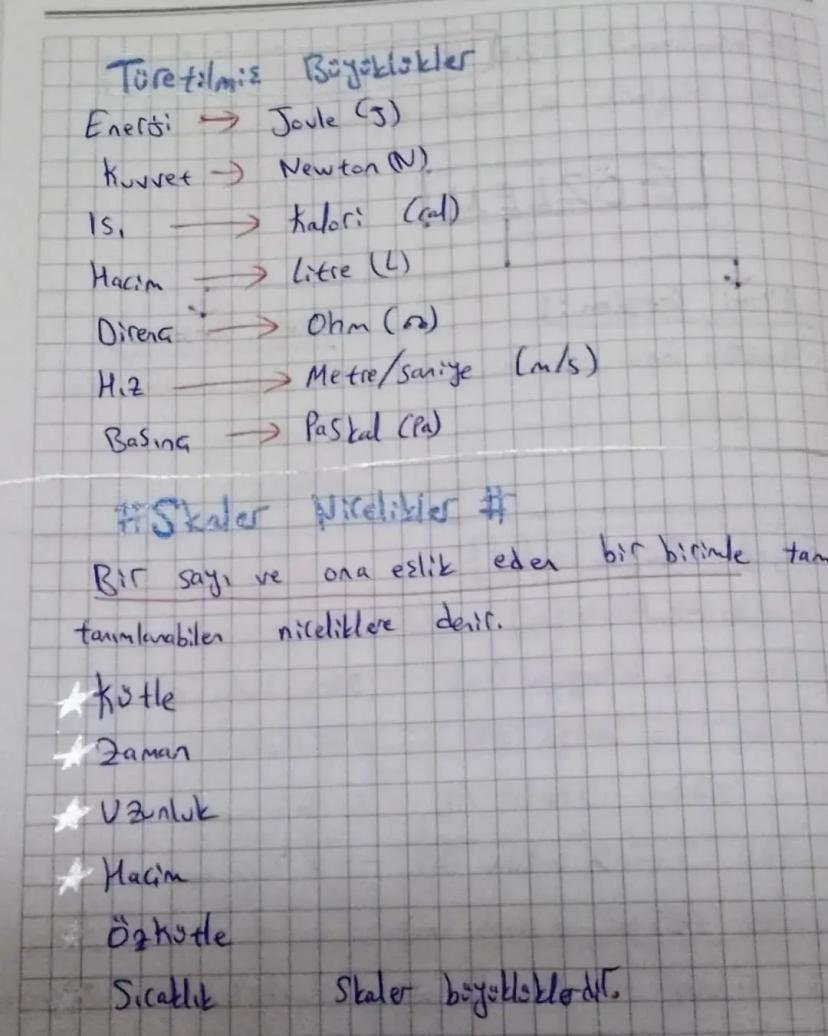 Türetilmiş Büyüklükler
Enerji → Joule (J)
Kuvvet → Newton (N)
Isı → Kalori (cal)
Hacim → Litre (L)
Direnç → Ohm (Ω)
Hız → Metre/saniye (m/s)
Basınç → Paskal (Pa)
#Skaler Nicelikler #
Bir sayı ve ona eşlik eden bir birimle tam
tanımlanabilen niceliklere denir.
Kütle
Zaman
Uzunluk
Hacim
Özkütle
Sıcaklık Skaler büyüklüklerdir.